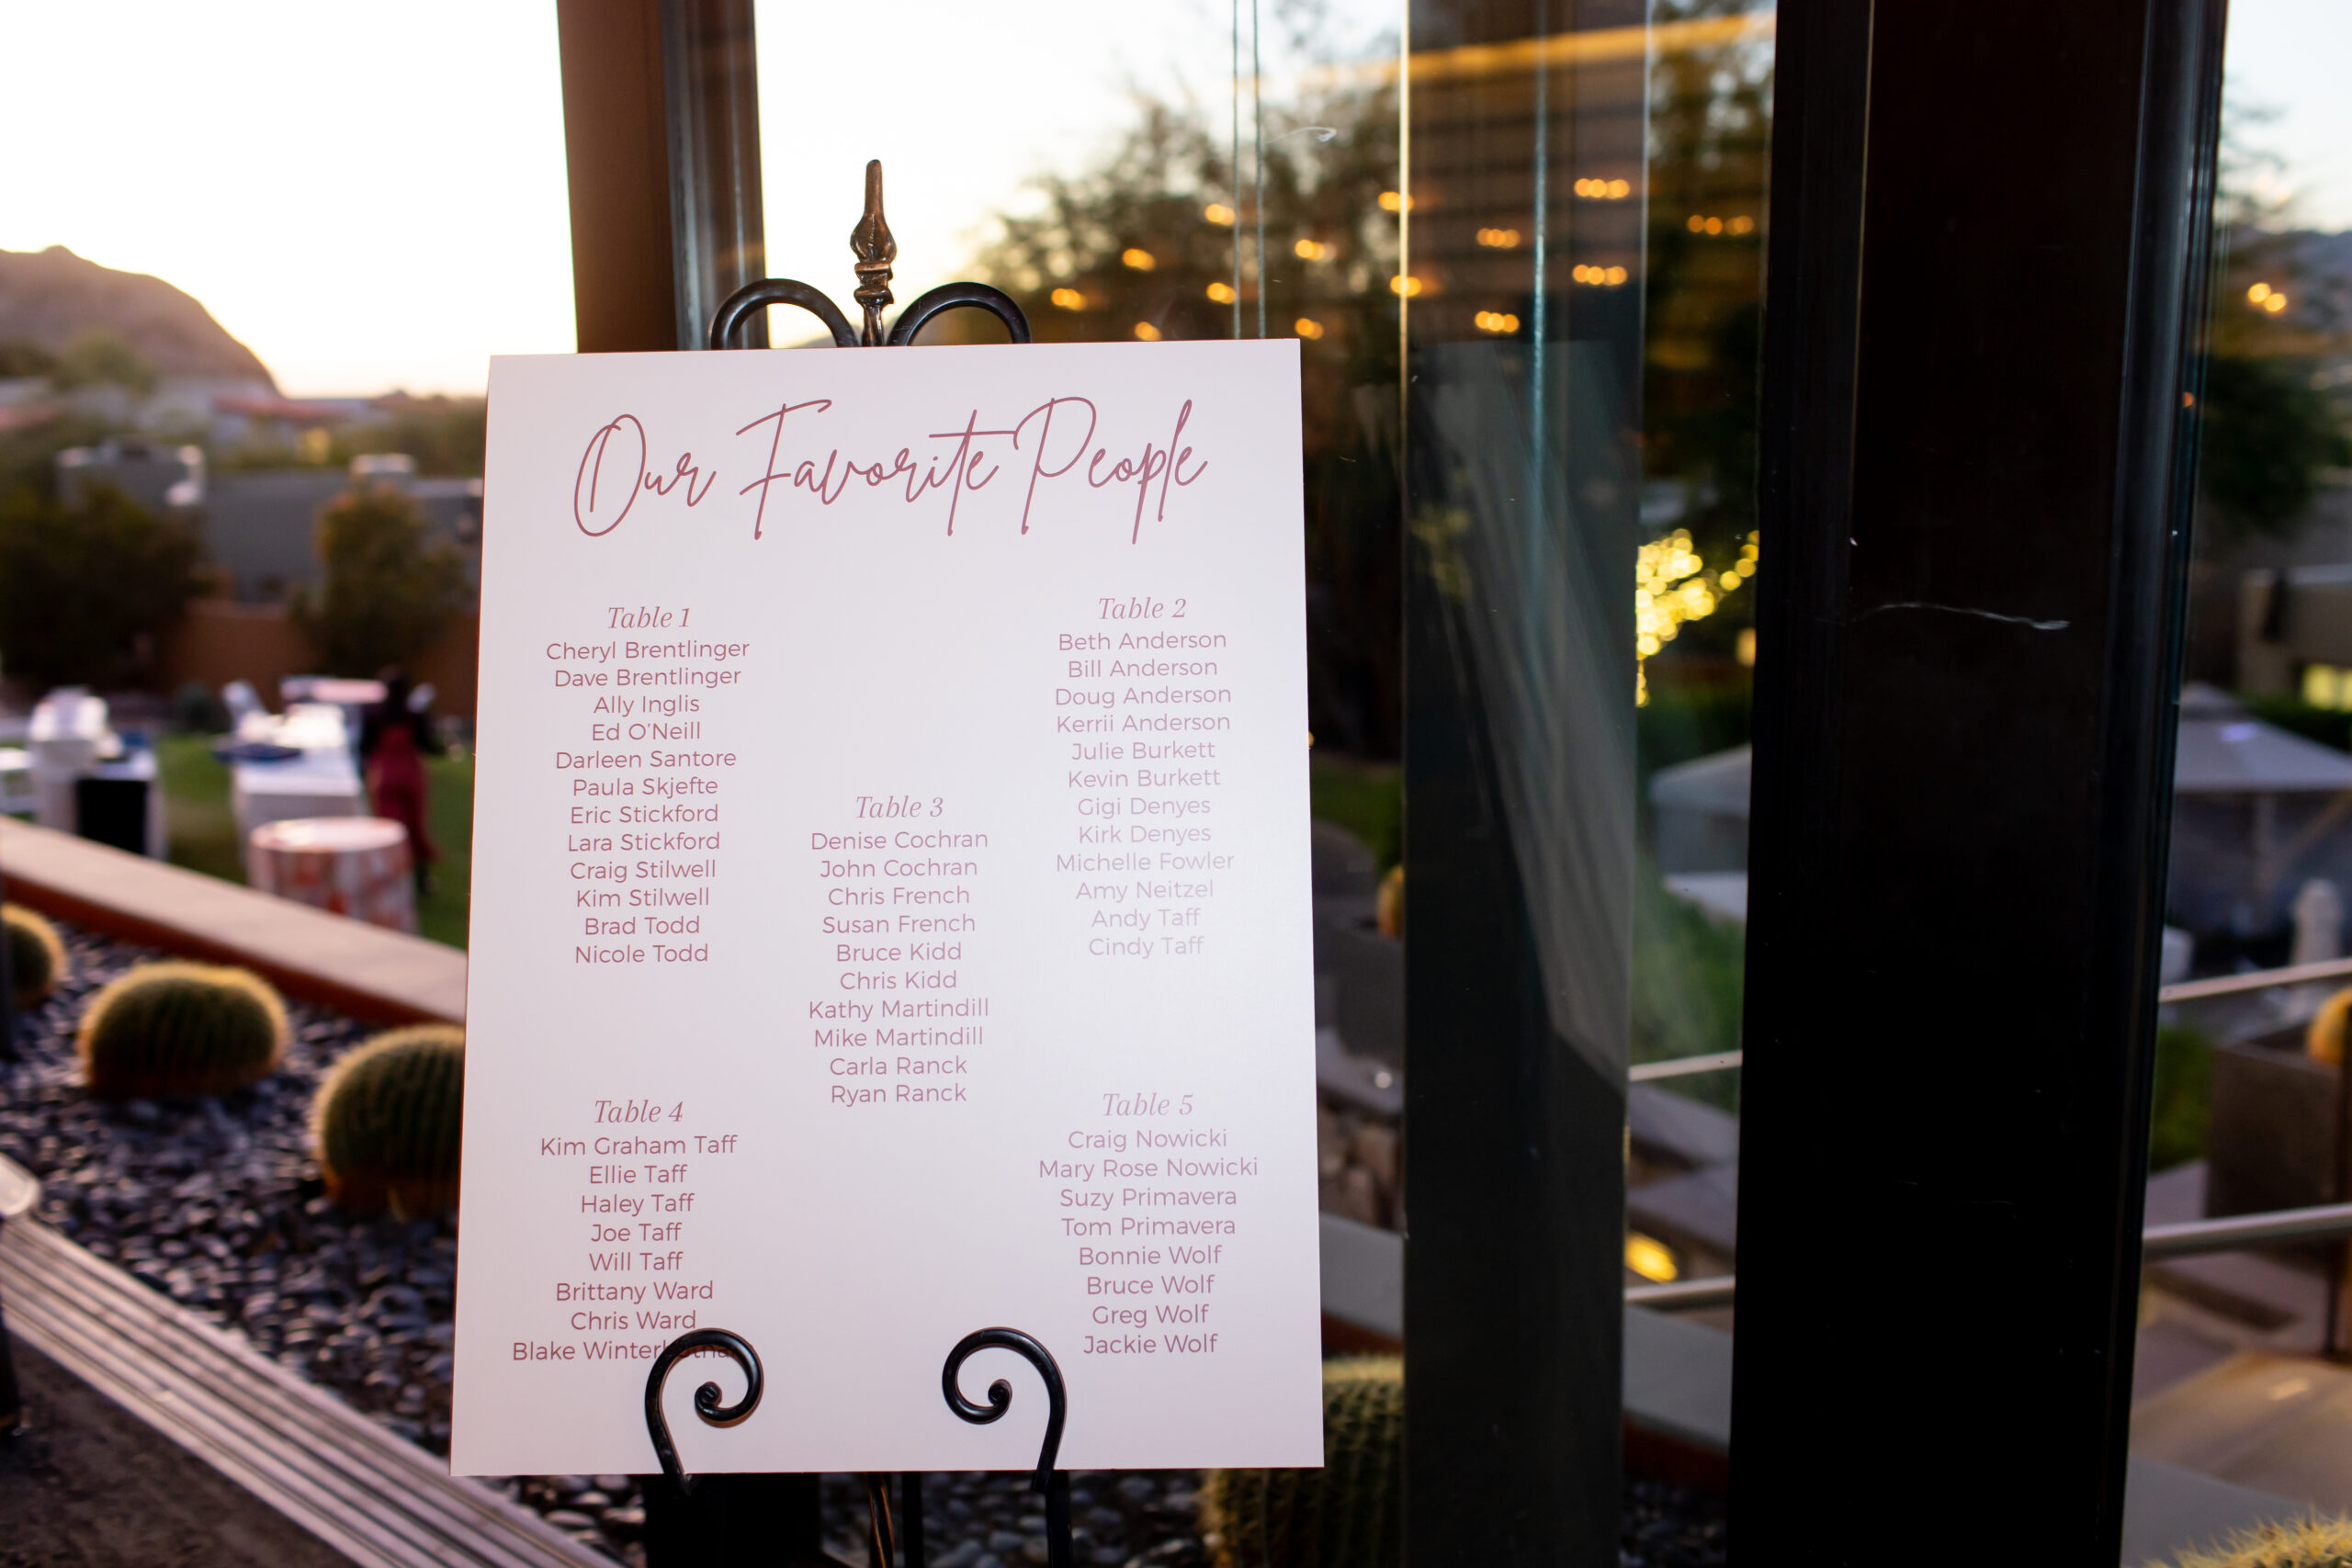 Our Favorite People
Table 1
Cheryl Brentlinger
Dave Brentlinger
Ally Inglis
Ed O'Neill
Darleen Santore
Paula Skjefte
Eric Stickford
Lara Stickford
Craig Stilwell
Kim Stilwell
Brad Todd
Nicole Todd
Table 2
Beth Anderson
Bill Anderson
Doug Anderson
Kerrii Anderson
Julie Burkett
Kevin Burkett
Gigi Denyes
Kirk Denyes
Michelle Fowler
Amy Neitzel
Andy Taff
Cindy Taff
Table 3
Denise Cochran
John Cochran
Chris French
Susan French
Bruce Kidd
Chris Kidd
Kathy Martindill
Mike Martindill
Carla Ranck
Ryan Ranck
Table 4
Kim Graham Taff
Ellie Taff
Haley Taff
Joe Taff
Will Taff
Brittany Ward
Chris Ward
Blake
Table 5
Craig Nowicki
Mary Rose Nowicki
Suzy Primavera
Tom Primavera
Bonnie Wolf
Bruce Wolf
Greg Wolf
Jackie Wolf